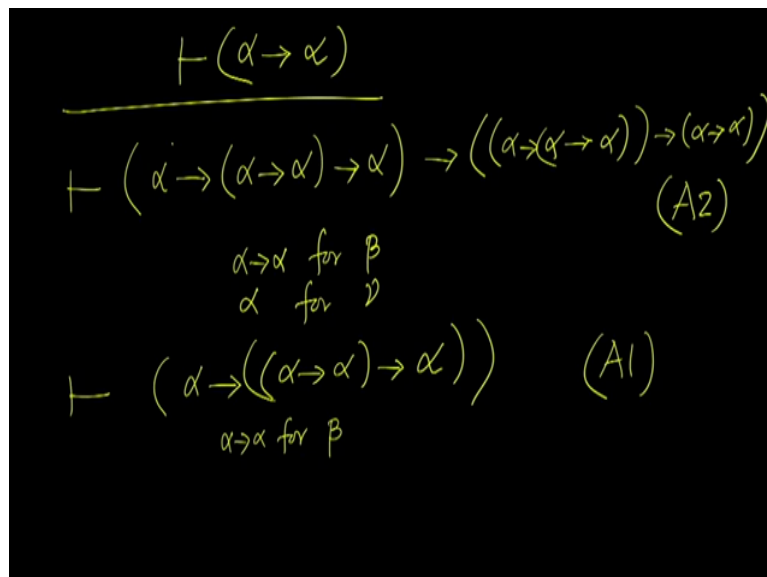 ⊢ (α → α)
⊢ (α → (α → α) → α) → ((α → (α → α)) → (α → α))
(A2)
α → α for β
α for γ
⊢ (α → ((α → α) → α)) (A1)
α → α for β